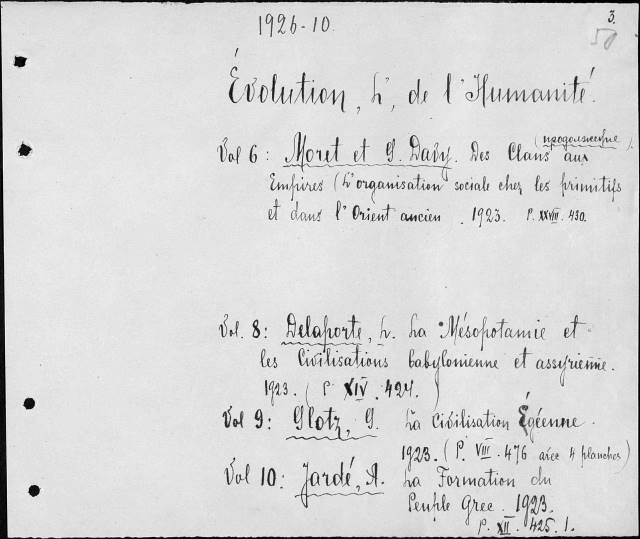 3.
1926-10.
50
Évolution, L', de l'Humanité.
(продолжение).
Vol 6: Moret et G. Davy. Des Clans aux
Empires (L'organisation sociale chez les primitifs
et dans l'Orient ancien. 1923. P. XXVIII. 430.
Vol. 8: Delaporte, L. La Mésopotamie et
les Civilisations babylonienne et assyrienne.
1923. (P. XIV. 424.)
Vol 9: Glotz, G. La Civilisation Égéenne.
1923. (P. VIII. 476 avec 4 planches)
Vol 10: Jardé, A. La Formation du
Peuple Grec. 1923.
P. XII. 425. 1.